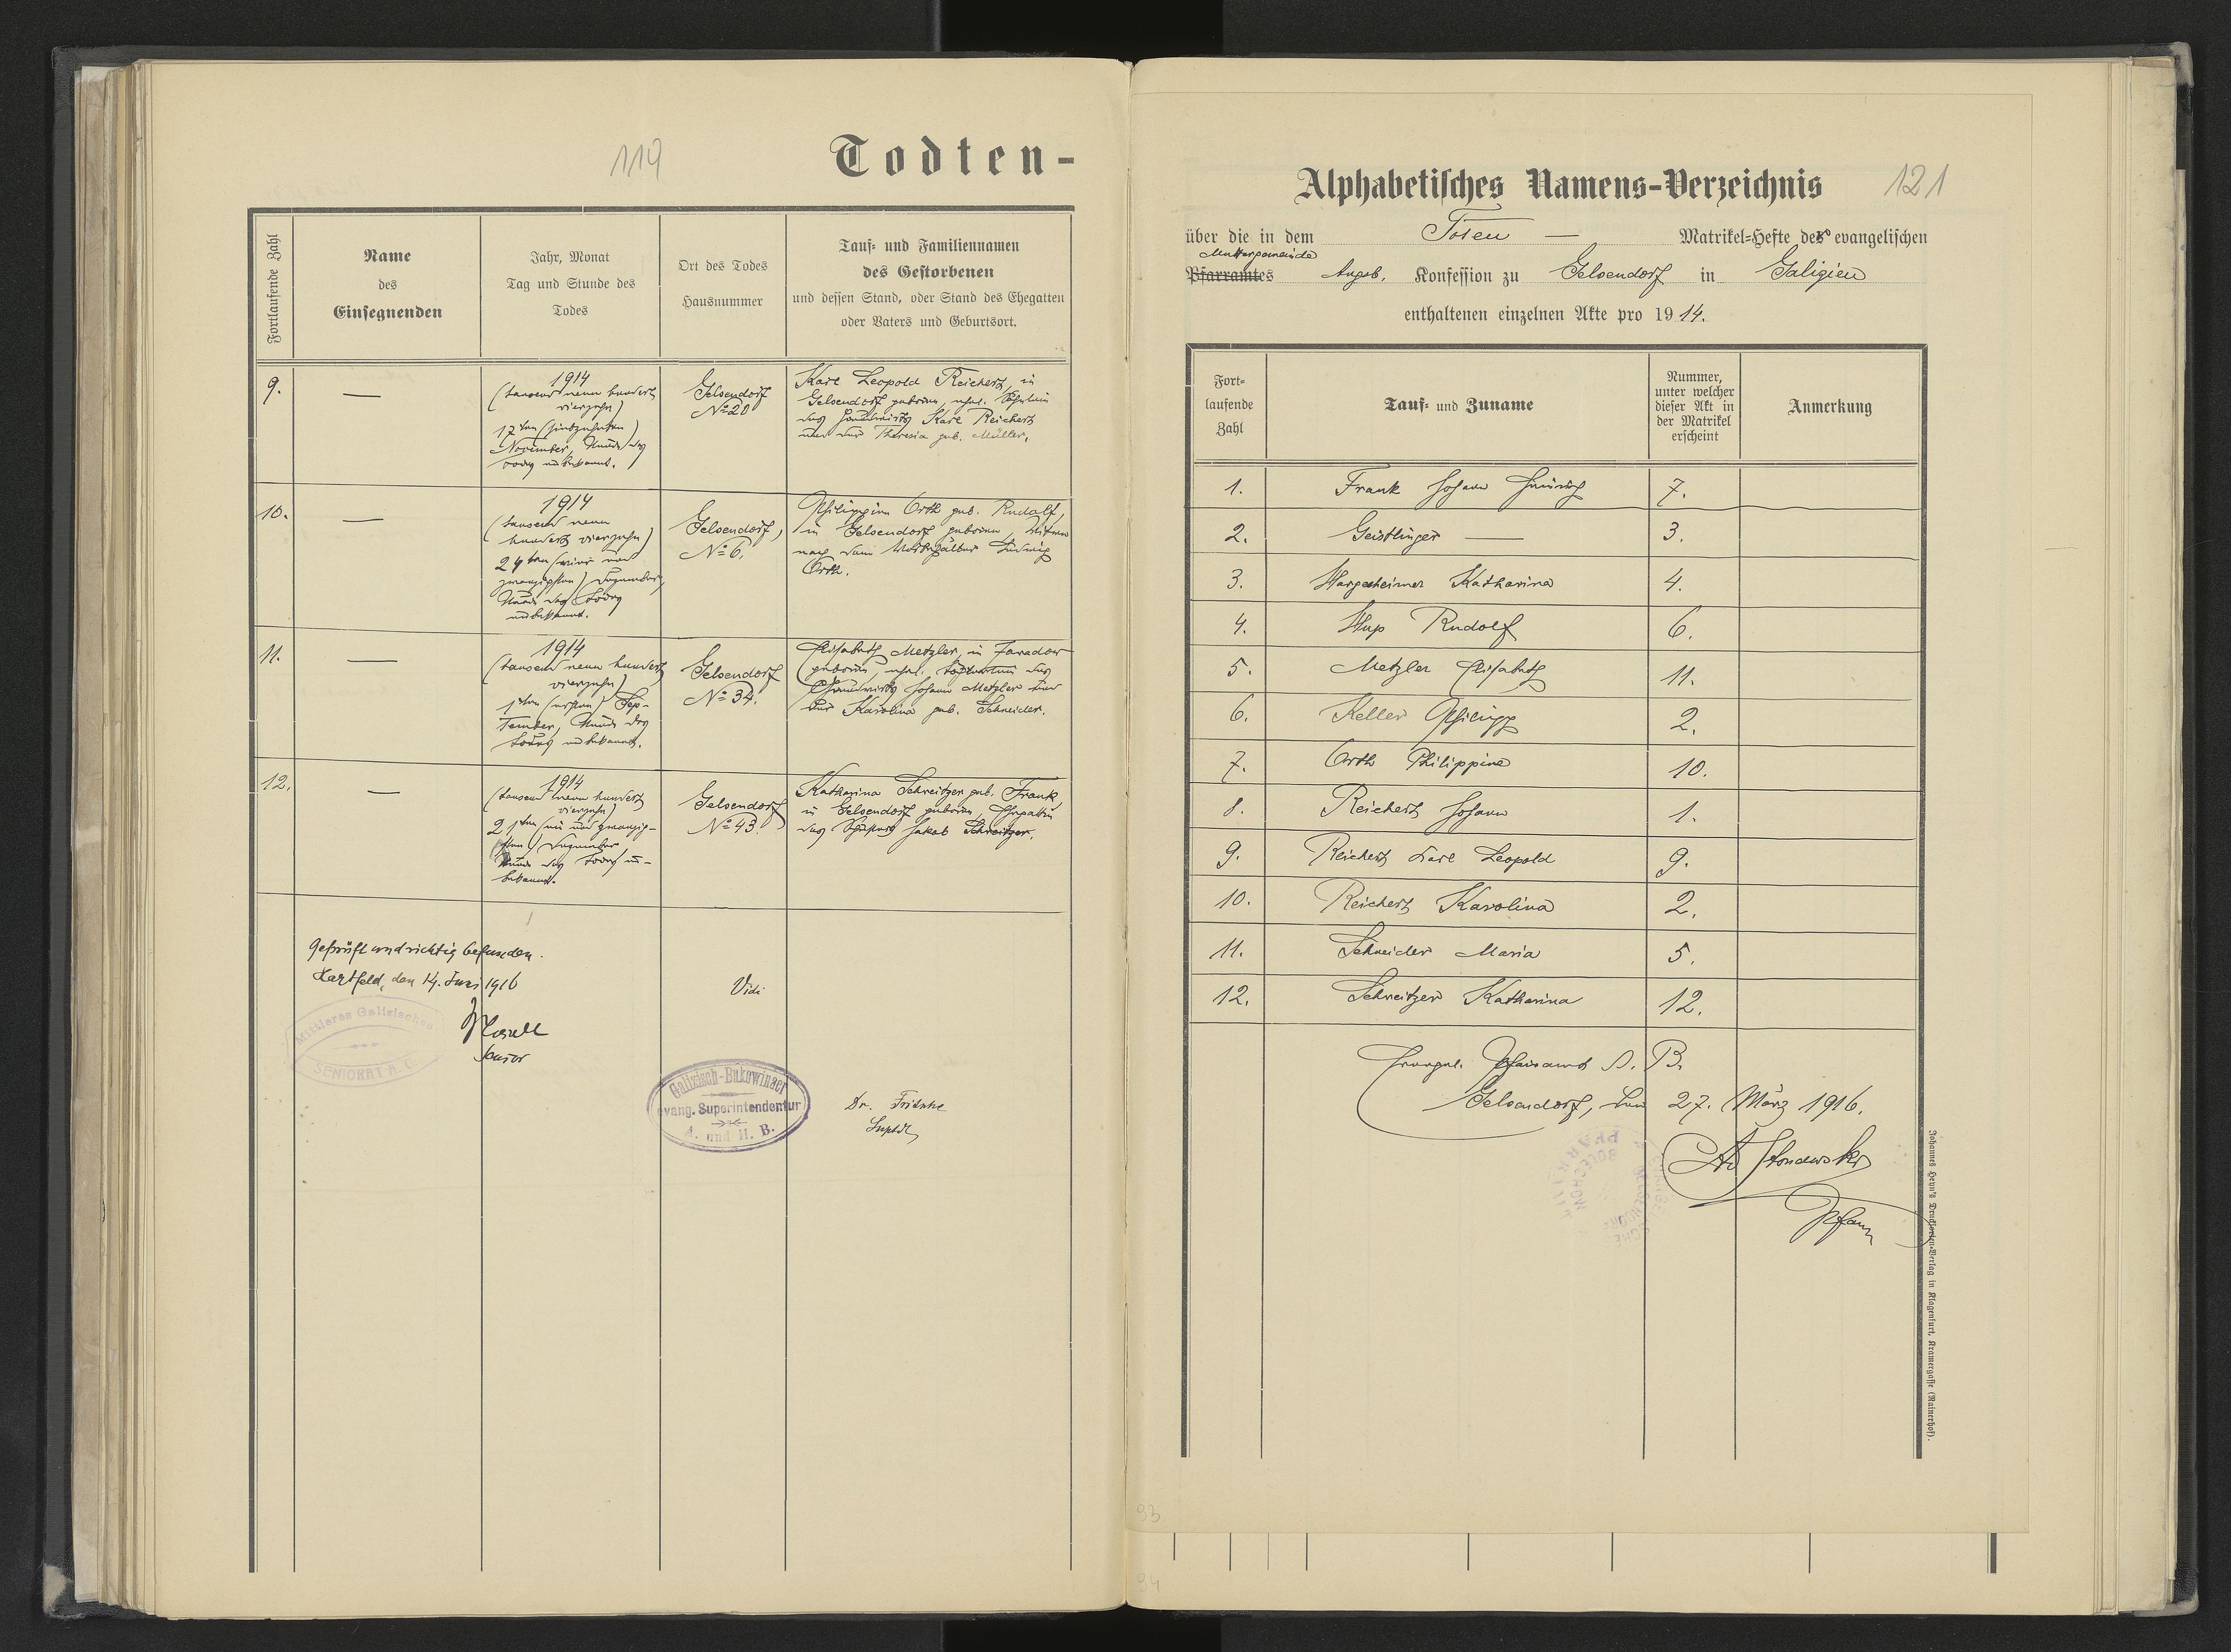 119
Todten-
Fortlaufende Zahl
Name
des
Einsegnenden
Jahr, Monat
Tag und Stunde des
Todes
Ort des Todes
Hausnummer
Tauf= und Familiennamen
des Gestorbenen
und dessen Stand, oder Stand des Ehegatten
oder Vaters und Geburtsort.
9.
—
1914
(tausend neun hundert
vierzehn)
17ten (siebzehnten)
November, Stunde des
Todes unbekannt.
Gelsendorf
№ 20
Karl Leopold Reichert, in
Gelsendorf geboren, ehel. Söhnlein
des Landwirts Karl Reichert
und der Theresia geb. Müller.
10.
—
1914
(tausend neun
hundert vierzehn)
24ten (vier und
zwanzigsten) Dezember,
Stunde des Todes
unbekannt.
Gelsendorf,
№ 6.
Philippine Orth geb. Rudolf,
in Gelsendorf geboren, Witwe
nach dem Ludwig
Orth.
11.
—
1914
(tausend neun hundert
vierzehn)
1ten (ersten) Sep-
tember, Stunde des
Todes unbekannt.
Gelsendorf
№ 34.
Elisabeth Metzler, in Zaradow
geboren, ehel. Töchterlein des
Landwirts Johann Metzler und
der Karolina geb. Schneider.
12.
—
1914
(tausend neun hundert
vierzehn)
21ten (ein und zwanzig-
sten) Dezember,
Stunde des Todes un-
bekannt.
Gelsendorf
№ 43.
Katharina Schweitzer geb. Frank,
in Gelsendorf geboren, Ehegattin
des Jakob Schweitzer.
Geprüft und richtig befunden.
Hartfeld, den 14. Juni 1916
Senior
Mittleres Galizisches
SENIORAT A. C.
Vidi
Galizisch-Bukowinaer
evang. Superintendentur
A. und H. B.
Dr. Fritsche
Suptdt
Alphabetisches Namens-Verzeichnis
121
über die in dem Toten — Matrikel=Hefte der evangelischen
Muttergemeinde
Pfarramtes Augsb. Konfession zu Gelsendorf in Galizien
enthaltenen einzelnen Akte pro 1914.
Fort=
laufende
Zahl
Tauf= und Zuname
Nummer,
unter welcher
dieser Akt in
der Matrikel
erscheint
Anmerkung
1. Frank Johann Heinrich 7.
2. Geistlinger — 3.
3. Hargesheimer Katharina 4.
4. Hup Rudolf 6.
5. Metzler Elisabeth 11.
6. Keller Philipp 2.
7. Orth Philippine 10.
8. Reichert Johann 1.
9. Reichert Karl Leopold 9.
10. Reichert Karolina 2.
11. Schneider Maria 5.
12. Schweitzer Katharina 12.
Evangel. Pfarramt A. B.
Gelsendorf, den 27. März 1916.
Pfarrer
Johannes Heyn's Drucksorten-Verlag in Klagenfurt, Kramergasse (Rainerhof).
93
94